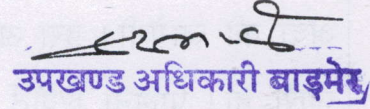 उपखण्ड अधिकारी बाड़मेर